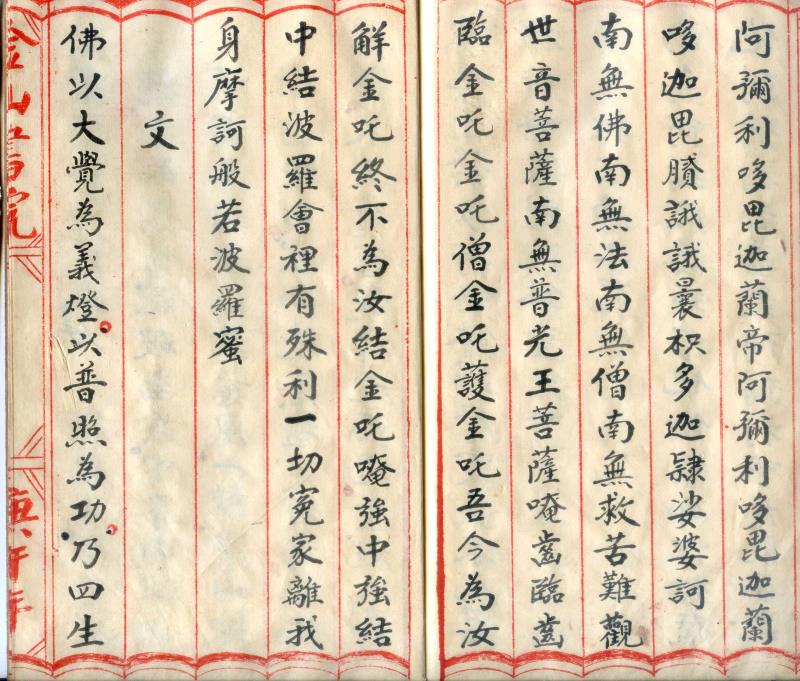 阿彌利哆毘迦蘭帝阿彌利哆毘迦蘭
哆迦毘賸誐誐曩枳多迦隷娑婆訶
南無佛南無法南無僧南無救苦難觀
世音菩薩南無普光王菩薩唵齒臨齒
臨金吒金吒僧金吒護金吒吾今為汝
解金吒終不為汝結金吒唵強中強結
中結波羅會裡有殊利一切冤家離我
身摩訶般若波羅蜜
文
佛以大覺為義燈以普照為功乃四生
金山書院
庚午年